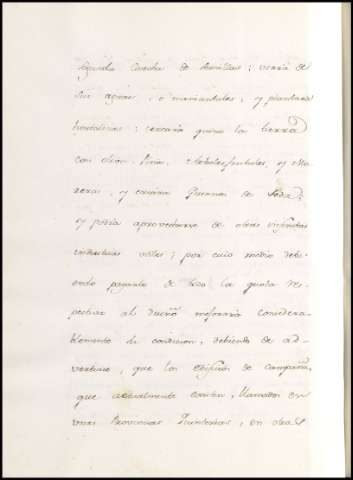 segunda Cosecha de semillas; usaria de
sus aguas, ò manantiales, y plantara
hortalizas: cercaria quiza la tierra
con olor. Pino. Arboles frutales, y Mo
reras, y criaria Gusanos de Seda;
y podia aprovecharse de otras infinitas
industrias utiles; por cuio medio debi-
endo pagarle de todo la quota res-
pectiva al dueño mejoraria considera-
blemente su condicion, debiendo de ad-
vertirse, que los edificios de campaña,
que actualmente existen, llamados en
unas Provincias Quinterias, en otras